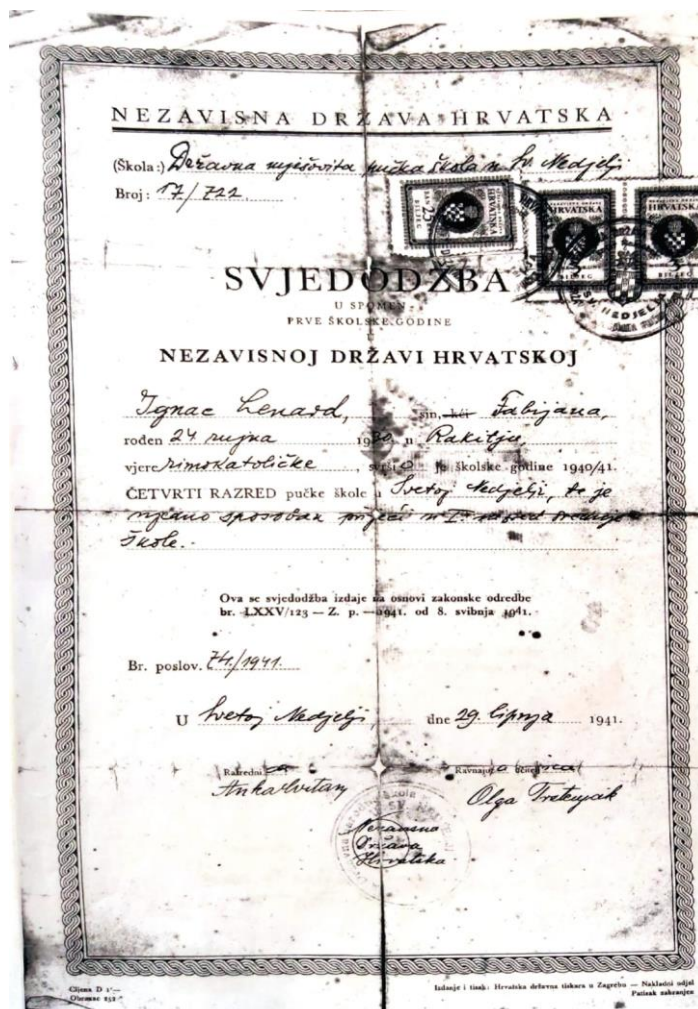 NEZAVISNA DRŽAVA HRVATSKA
(Škola:) Državna mješovita pučka škola u Sv. Nedjelji
Broj: 17/722.
HRVATSKA
BILJEG
HRVATSKA
BILJEG
HRVATSKA
BILJEG
SV. NEDJELJ
SVJEDODŽBA
U SPOMEN
PRVE ŠKOLSKE GODINE
U
NEZAVISNOJ DRŽAVI HRVATSKOJ
Ignac Lenard, sin, kći Fabijana,
rođen 24 rujna 1930 u Rakitju,
vjere rimokatoličke, svršio je školske godine 1940/41.
ČETVRTI RAZRED pučke škole u Svetoj Nedjelji, te je
sposoban prijeći u I. razred srednje
škole.
Ova se svjedodžba izdaje na osnovi zakonske odredbe
br. LXXV/123 — Z. p. — 1941. od 8. svibnja 1941.
Br. poslov. 74./1941.
U Svetoj Nedjelji, dne 29. lipnja 1941.
Razredni Ravnajuća učiteljica
Anka Svitan Olga Tretenjak
Nezavisna
Država
Hrvatska
Cijena D 1'—
Obrazac 252
Izdanje i tisak: Hrvatska državna tiskara u Zagrebu — Nakladni odjel
Patisak zabranjen